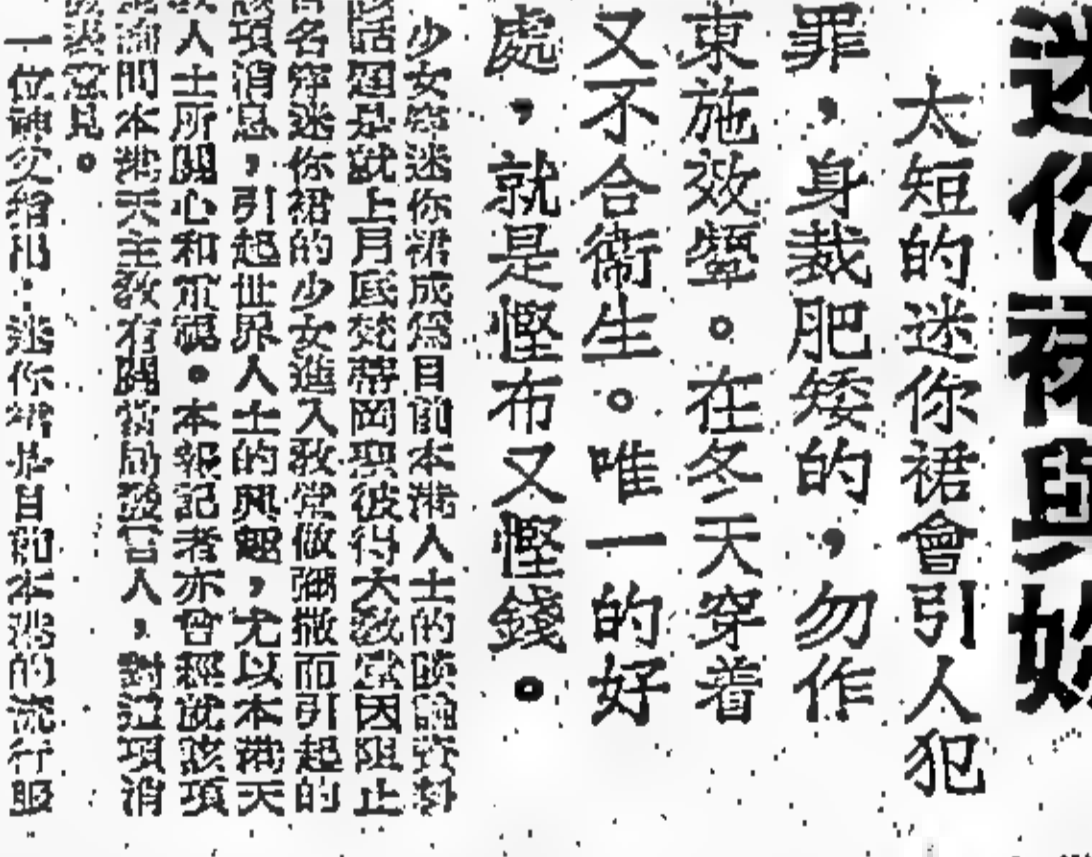 迷你裙與妳
太短的迷你裙會引人犯
罪，身裁肥矮的，勿作
東施效顰。在冬天穿着
又不合衞生。唯一的好
處，就是慳布又慳錢。
少女穿迷你裙成爲目前本港人士的談論資料
該話題是就上月底梵蒂岡聖彼得大教堂因阻止
名穿迷你裙的少女進入教堂做彌撒而引起的
項消息，引起世界人士的興趣，尤以本港天
人士所關心和重視。本報記者亦曾經就該項
問本港天主教有關當局發言人，對這項消
表意見。
一位神父指出：迷你裙是目前本港的流行服